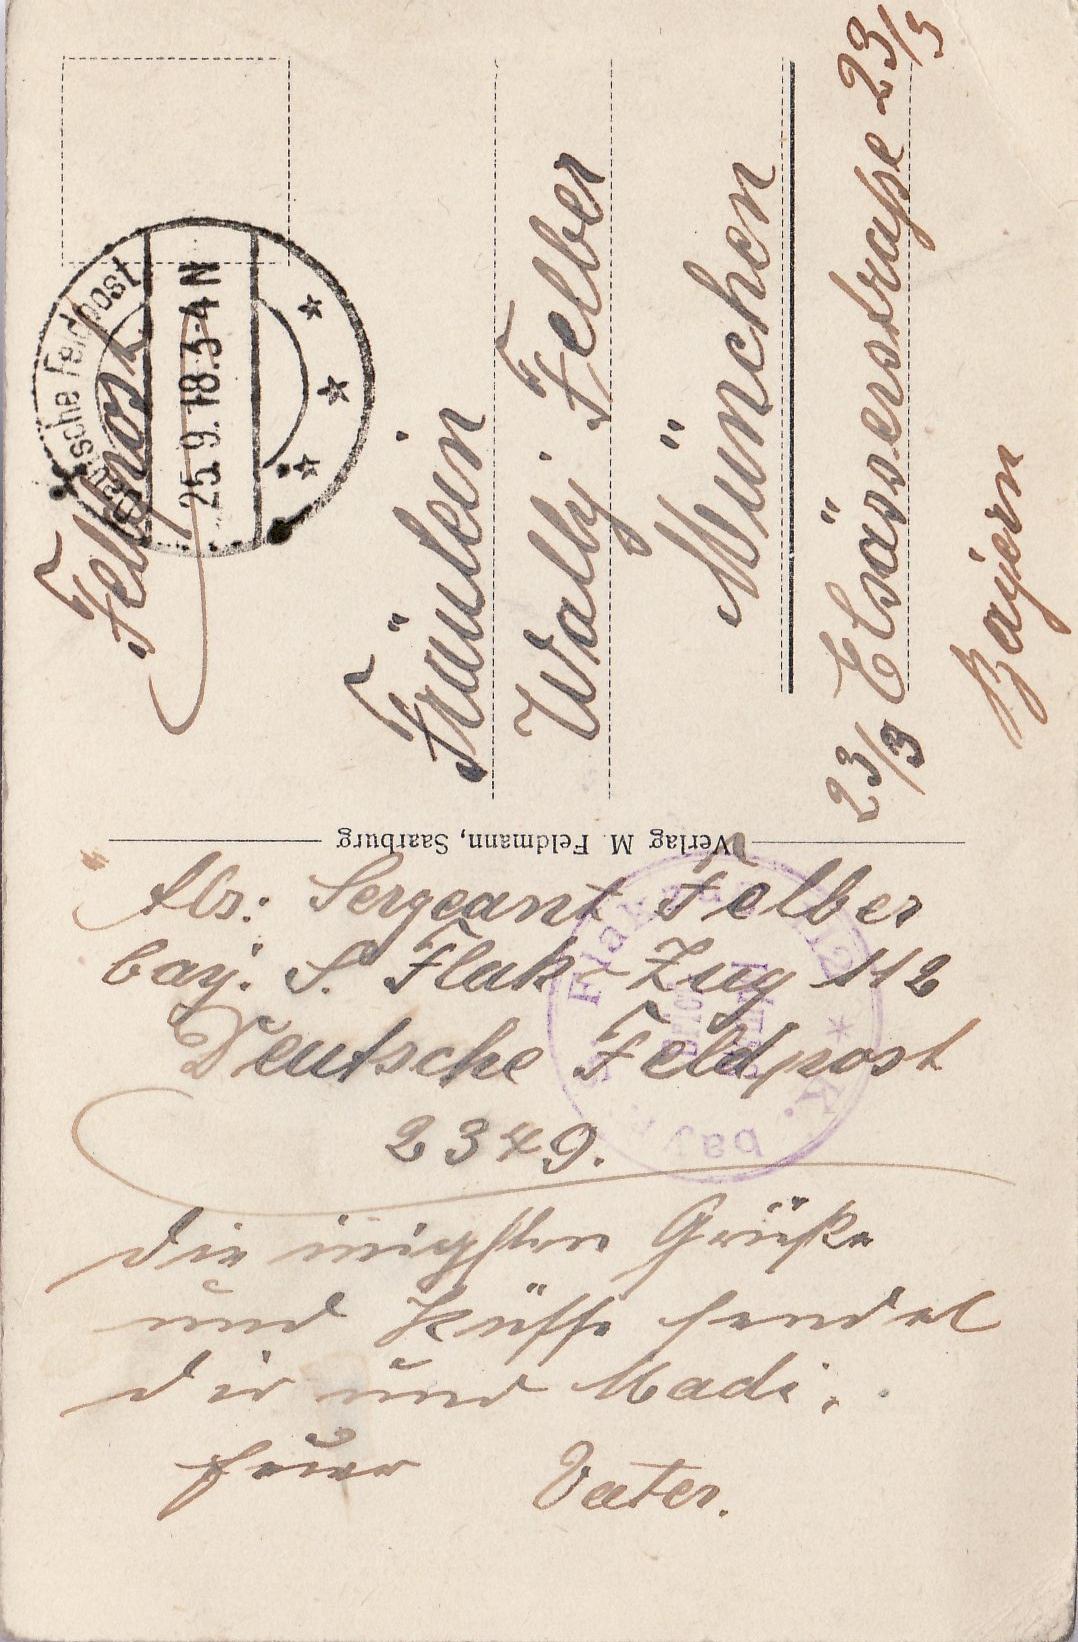 Feldpost
Deutsche Feldpost
25.9.18.3-4N
Fräulein
Wally Felber
München
23/3 Elsässerstraße 23/3
Bayern
Verlag M. Feldmann, Saarburg
Abs: Sergeant Felber
bay. S. Flak-Zug 112
Deutsche Feldpost
2349.
Die innigsten Grüße
und Küsse sendet
Dir und Madi.
Euer Vater.